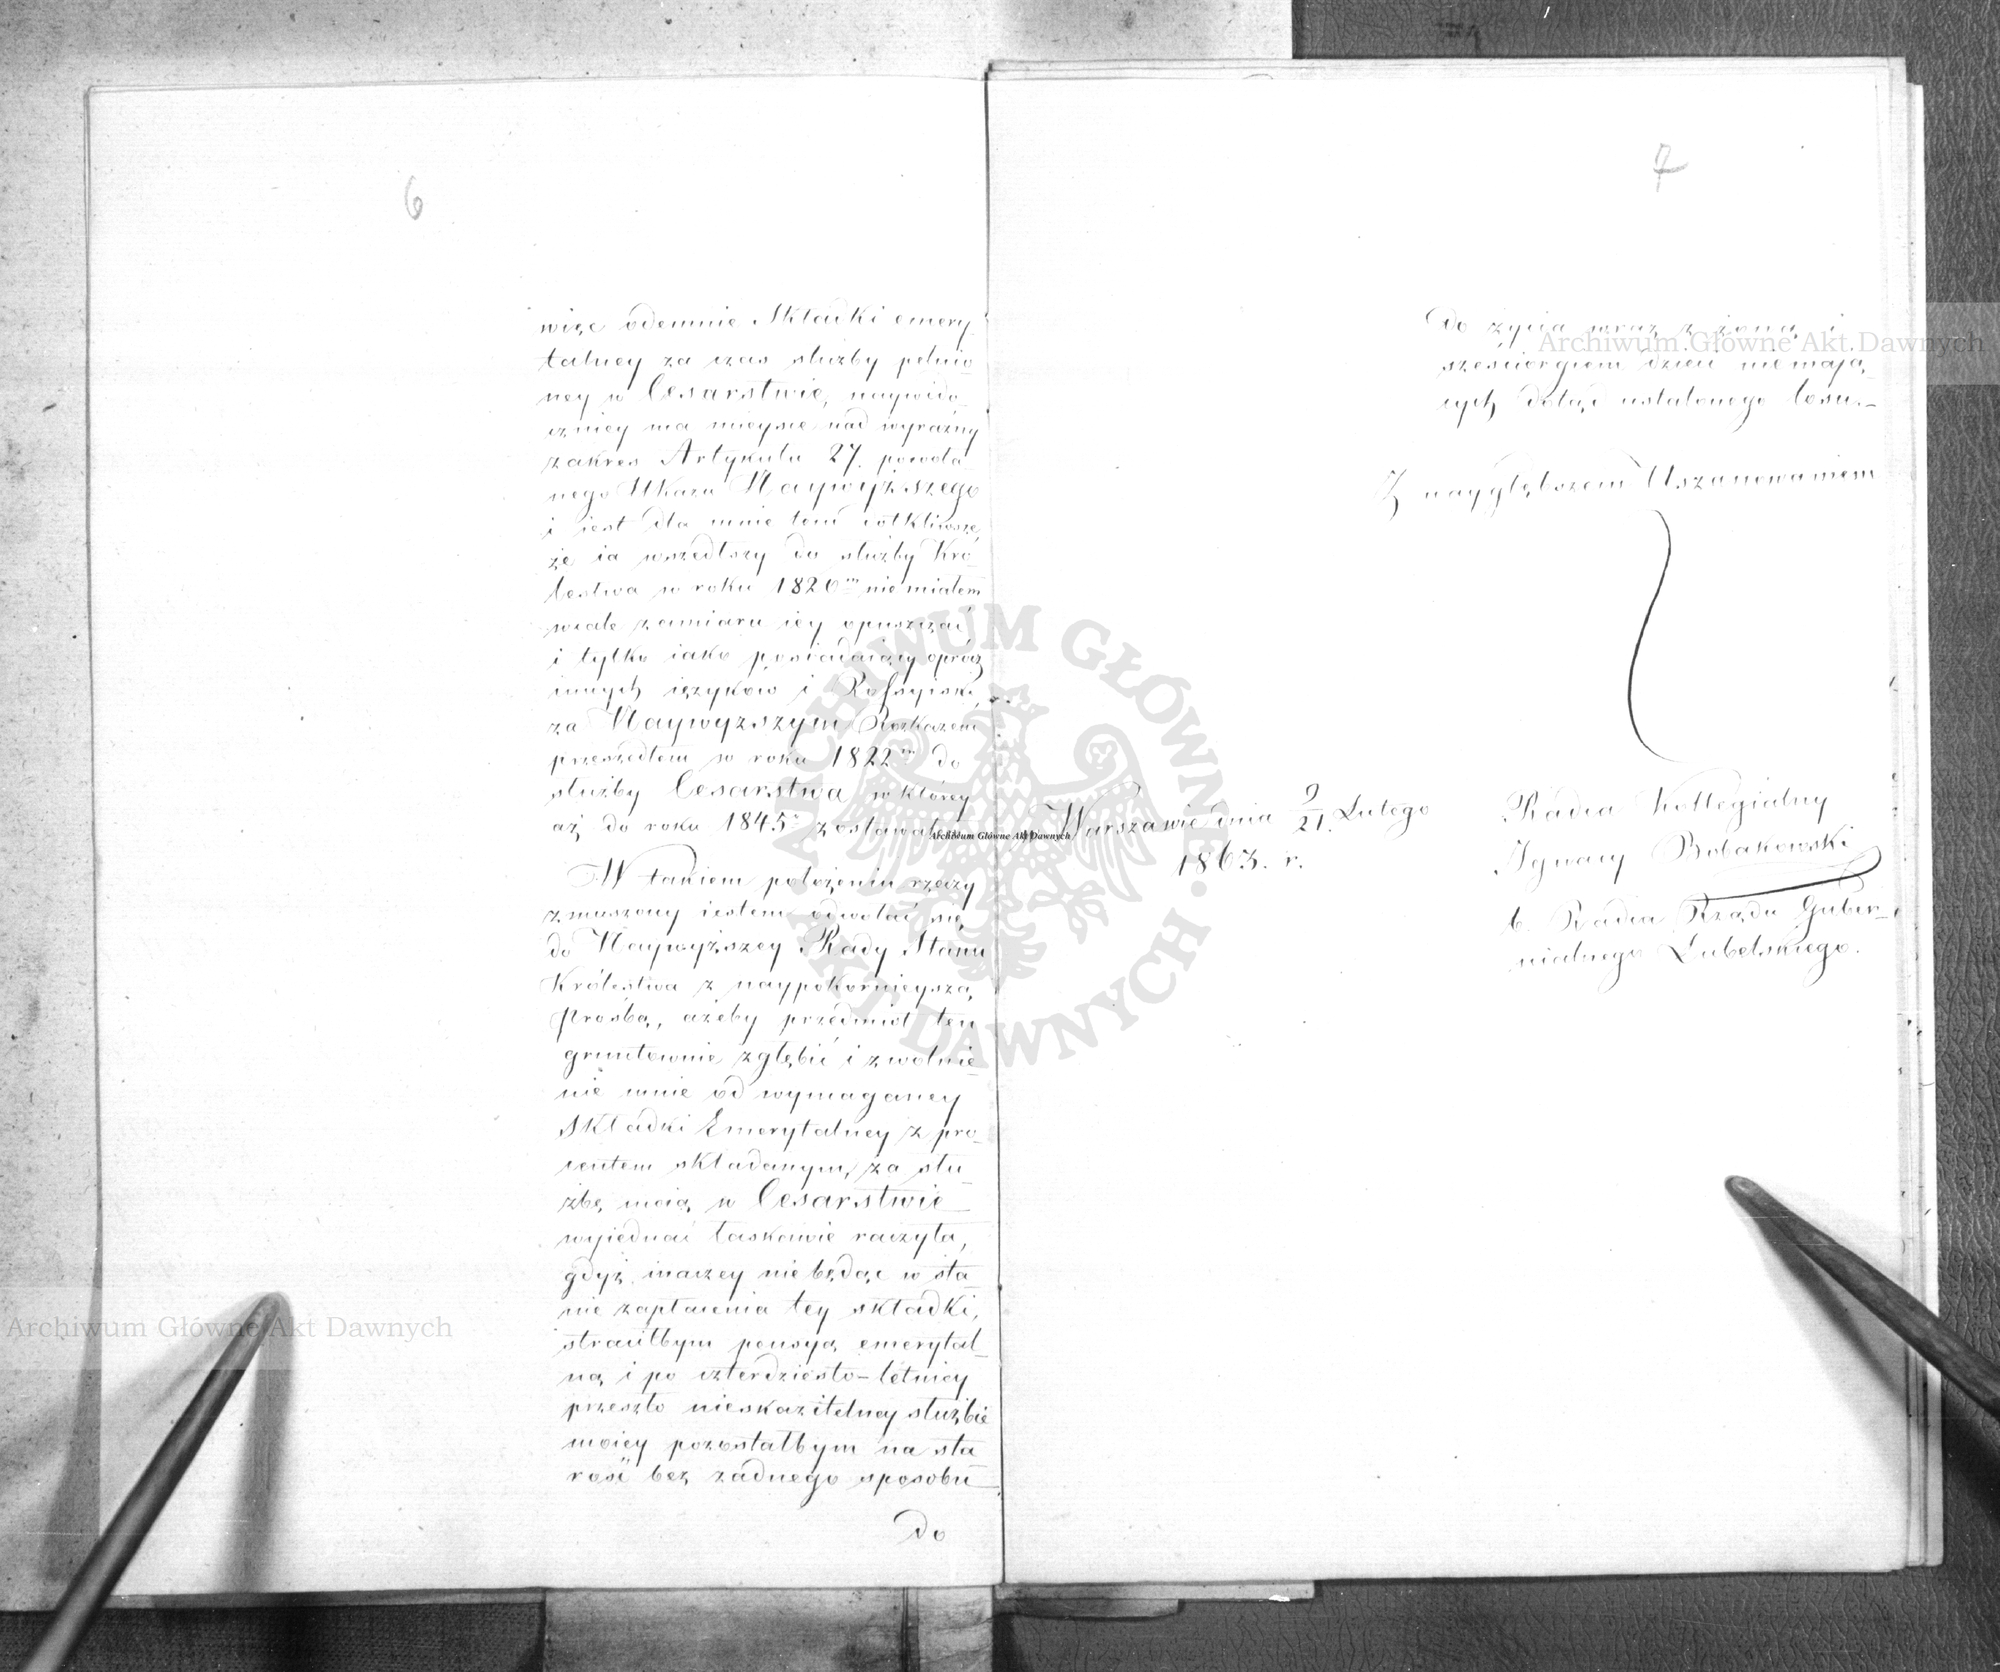 6
więc odemnie Składki emery-
talney za czas służby pełnio-
ney w Cesarstwie, naywido-
czniey ma mieysce nad wyraźny
zakres Artykułu 27. powoła-
nego Ukazu Naywyższego
i iest dla mnie tem dotkliwsze,
że ia wszedłszy do służby Kró-
lestwa w roku 1820m nie miałem
wcale zamiaru iey opuszczać,
i tylko iako posiadaiący oprócz
innych ięzyków i Rossyiski,
za Naywyższym Rozkazem
przeszedłem w roku 1822m do
służby Cesarstwa w którey
aż do roku 1845o zostawałem.
W takiem położeniu rzeczy
zmuszony iestem odwołać się
do Naywyższey Rady Stanu
Królestwa z naypokornieyszą
prośbą, ażeby przedmiot ten
gruntownie zgłębić i zwolnie-
nie mnie od wymaganey
składki Emerytalney z pro-
centem składanym, za słu-
żbę moią w Cesarstwie
wyiednać łaskawie raczyła,
gdyż inaczey nie będąc w sta-
nie zapłacenia tey składki,
straciłbym pensyą emerytal-
ną i po czterdziesto-letniey
przeszło nieskazitelney służbie
moiey pozostałbym na sta-
rość bez żadnego sposobu
do
7
do życia wraz z żoną i
sześciorgiem dzieci nie mają-
cych dotąd ustalonego losu.-
Z naygłębszem Uszanowaniem
w Warszawie dnia 9/21. Lutego
1863. r.
Radca Kollegialny
Ignacy Bobakowski
b. Radca Rządu Guber-
nialnego Lubelskiego.
Archiwum Główne Akt Dawnych
Archiwum Główne Akt Dawnych
Archiwum Główne Akt Dawnych
ARCHIWUM GŁÓWNE
AKT DAWNYCH